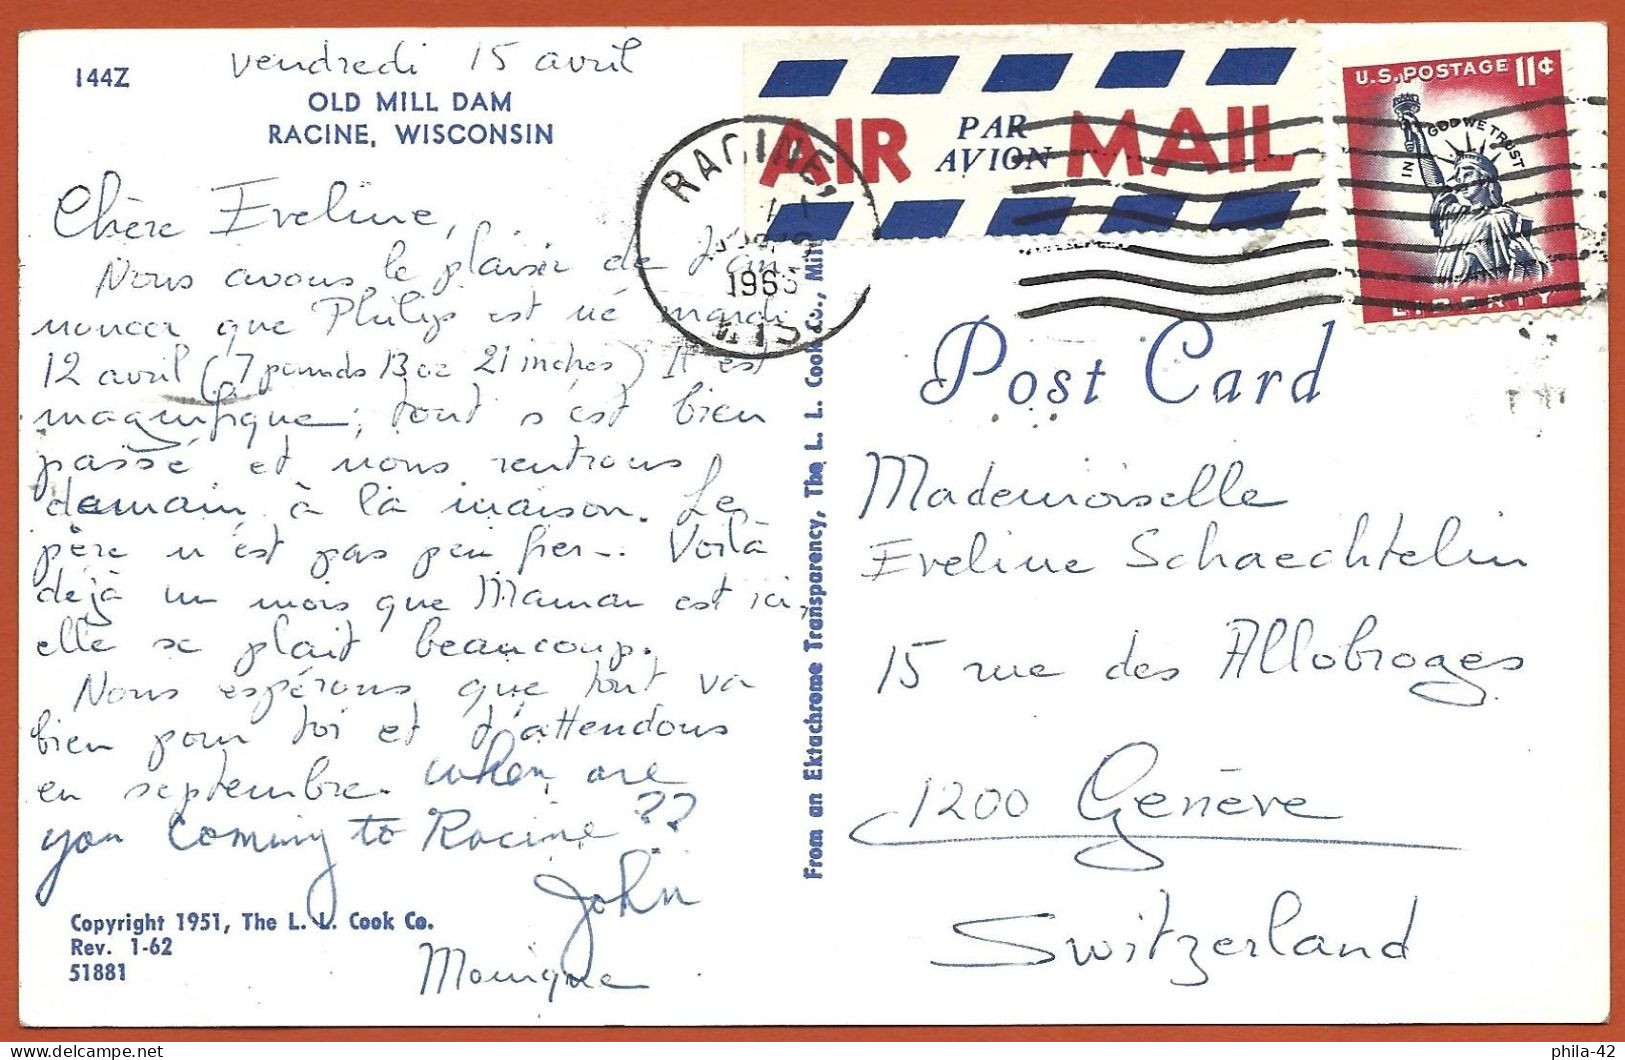 144Z
vendredi 15 avril
OLD MILL DAM
RACINE, WISCONSIN
Chère Eveline,
Nous avons le plaisir de t'an
noncer que Philip est né mardi
12 avril (7 pounds 13 oz 21 inches) Il est
magnifique; tout s'est bien
passé et nous rentrons
demain à la maison. Le
père n'est pas peu fier... Voilà
déjà un mois que Maman est ici,
elle se plait beaucoup.
Nous espérons que tout va
bien pour toi et t'attendons
en septembre. When are
you coming to Racine??
John
Monique
Copyright 1951, The L. L. Cook Co.
Rev. 1-62
51881
From an Ektachrome Transparency, The L. L. Cook Co.,
RACINE,
WIS
AIR PAR AVION MAIL
U.S. POSTAGE 11¢
IN GOD WE TRUST
LIBERTY
Post Card
Mademoiselle
Eveline Schaechtelin
15 rue des Allobroges
1200 Genève
Switzerland
phila-42